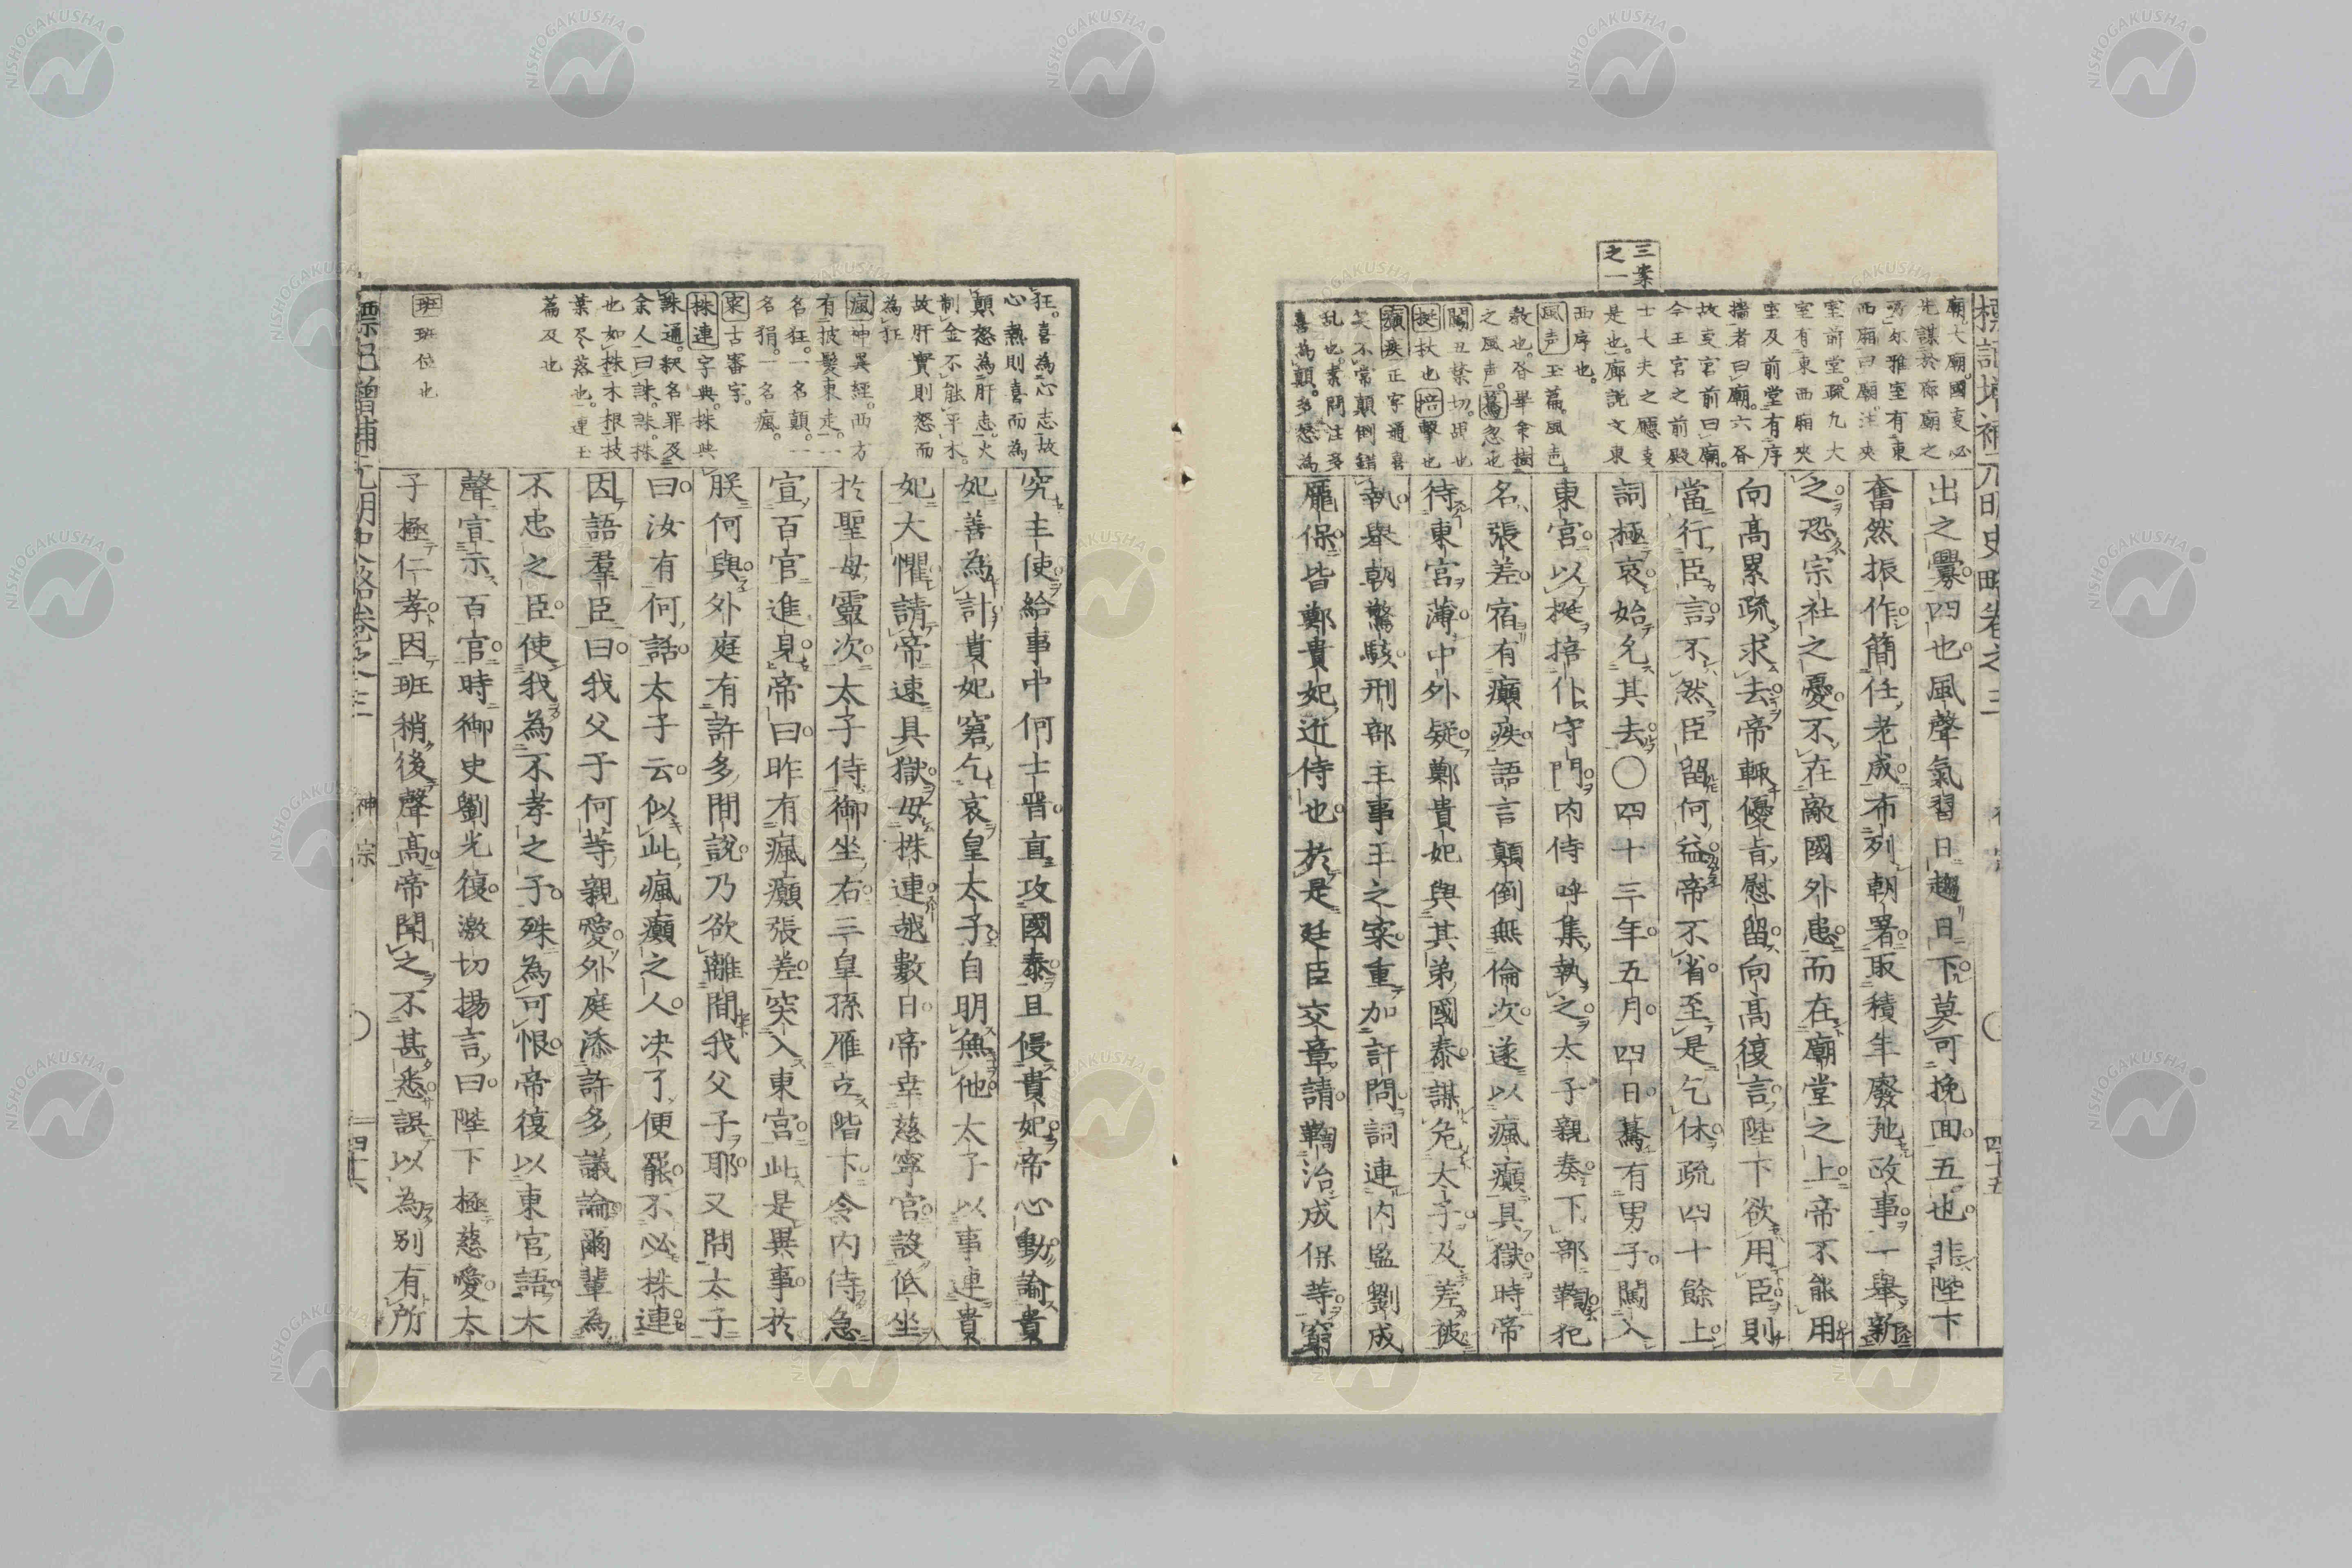 標記增補元明史略卷之三
四十五
三案
之一
廟大廟國事必
先謀於廊廟之
所尔雅室有東
西廂曰廟注夾
室前堂疏凡大
室有東西廂夾
室及前堂有序
墻者曰廟六書
故吏宮前曰廟
今王宮之前殿
士大夫之廳事
是也廊說文東
西序也
風声玉篇風声
教也書畢命樹
之風声驀忽也
闖丑禁切馬也
挺杖也掊擊也
癲疾正字通喜
笑不常顛倒錯
乱也素問注多
喜為顛多怒為
出之釁四也風聲氣習日趨日下莫可挽回五也非陛下
奮然振作簡任老成布列朝署取積年廢弛政事一舉新
之恐宗社之憂不在敵國外患而在廟堂之上帝不能用
向高累疏求去帝輒優旨慰留向高復言陛下欲用臣則
當行臣言不然臣留何益帝不省至是乞休疏四十餘上
詞極哀始允其去〇四十三年五月四日驀有男子闖入
東宮以挺掊仆守門內侍呼集執之太子親奏下部鞫犯
名張差宿有癲疾語言顛倒無倫次遂以瘋癲具獄時帝
待東宮薄中外疑鄭貴妃與其弟國泰謀危太子及差被
執舉朝驚駭刑部主事王之寀重加訐問詞連內監劉成
龐保皆鄭貴妃近侍也於是廷臣交章請鞫治成保等窮
狂喜為心志故
心熱則喜而為
顛怒為肝志火
制金不能平木
故肝實則怒而
為狂
瘋神異經西方
有披髮東走一
名狂一名顛一
名狷一名瘋
寀古審字
株連字典株與
誅通釈名罪及
余人曰誅誅株
也如株木根枝
葉尽落也連王
篇及也
班班位也
究主使給事中何士晋直攻國泰且侵貴妃帝心動諭貴
妃善為計貴妃窘乞哀皇太子自明無他太子以事連貴
妃大懼請帝速具獄毋株連越數日帝幸慈寧宮設低坐
於聖母靈次太子侍御坐右三皇孫雁立階下令內侍急
宣百官進見帝曰昨有瘋癲張差突入東宮此是異事於
朕何與外庭有許多間說乃欲離間我父子耶又問太子
曰汝有何話太子云似此瘋癲之人決了便罷不必株連
因語羣臣曰我父子何等親愛外庭添許多議論爾輩為
不忠之臣使我為不孝之子殊為可恨帝復以東宮語大
聲宣示百官時御史劉光復激切揚言曰陛下極慈愛太
子極仁孝因班稍後聲高帝聞之不甚悉誤以為別有所
標記增補元明史略卷之三
神宗
四十六